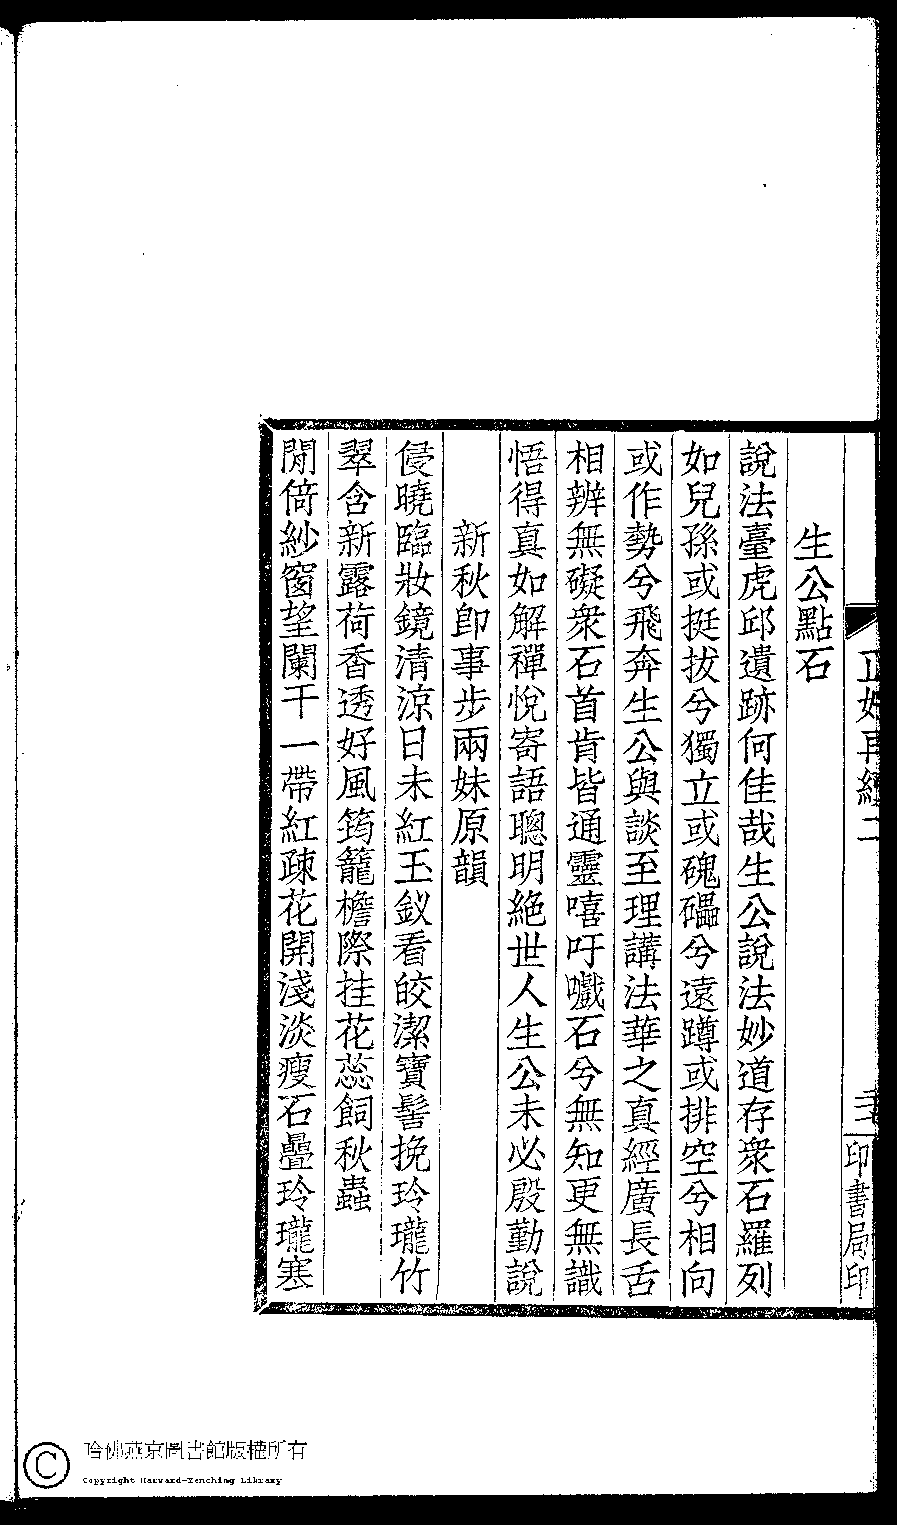 生公點石
說法臺虎邱遺跡何佳哉生公說法妙道存衆石羅列
如兒孫或挺拔兮獨立或磈礧兮遠蹲或排空兮相向
或作勢兮飛奔生公與談至理講法華之真經廣長舌
相辨無礙衆石首肯皆通靈嘻吁嚱石兮無知更無識
悟得真如解禪悅寄語聰明絶世人生公未必殷勤說
新秋即事步兩妹原韻
侵曉臨妝鏡清涼日未紅玉釵看皎潔寶髻挽玲瓏竹
翠含新露荷香透好風筠籠檐際挂花蕊飼秋蟲
閒倚紗窗望闌干一帶紅疎花開淺淡瘦石疊玲瓏塞
印書局印
哈佛燕京圖書館版權所有
Copyright Harvard-Yenching Library